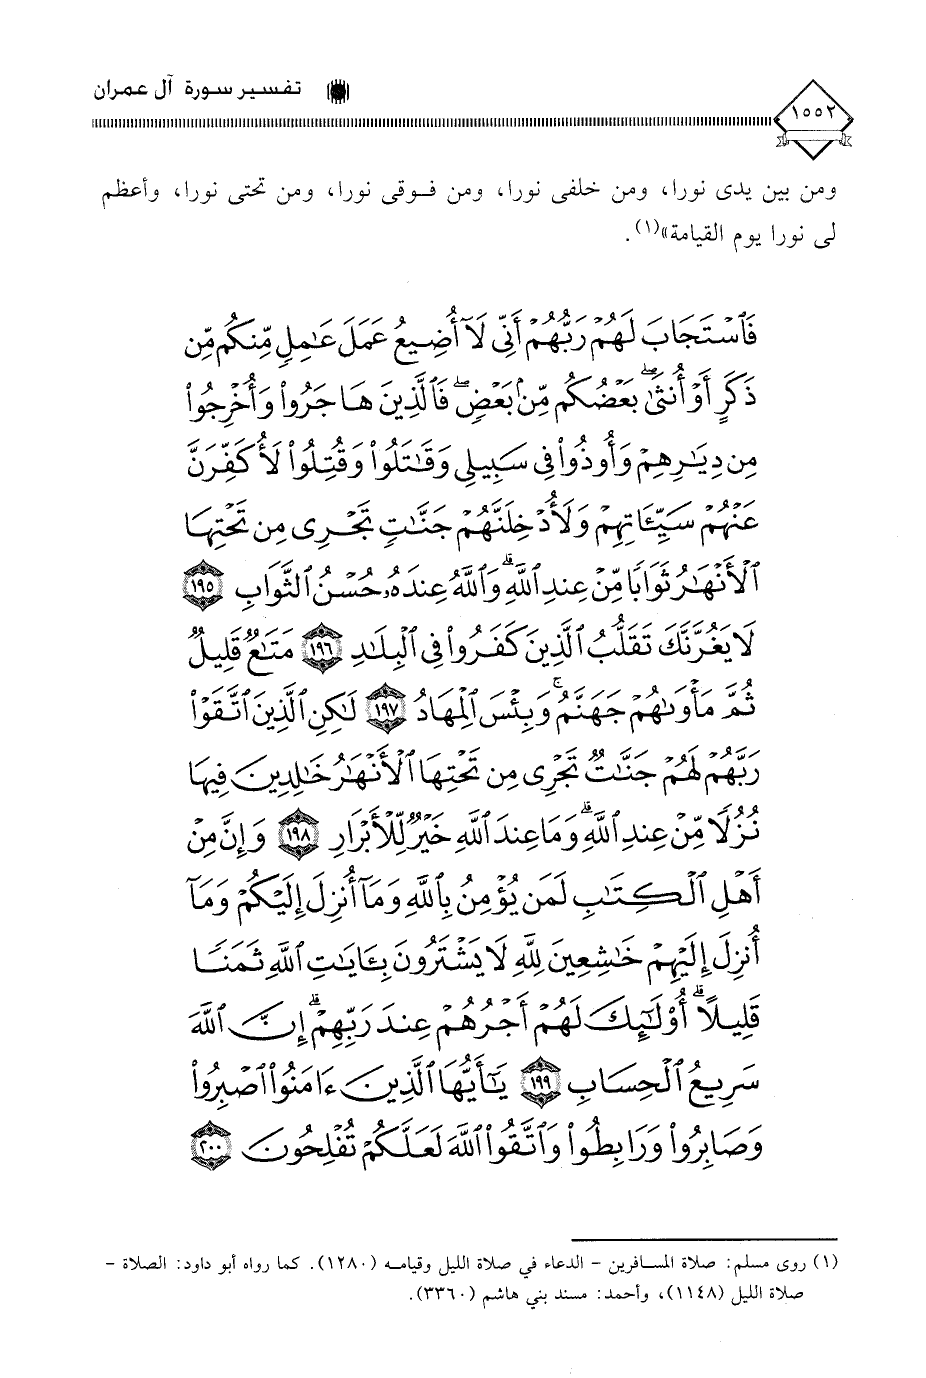 تفسير سورة آل عمران
١٥٥٢
ومن بين يدى نورا، ومن خلفى نورا، ومن فوقى نورا، ومن تحتى نورا، وأعظم
لى نورا يوم القيامة»(١).
فَٱسْتَجَابَ لَهُمْ رَبُّهُمْ أَنِّى لَآ أُضِيعُ عَمَلَ عَٰمِلٍ مِّنكُم مِّن
ذَكَرٍ أَوْ أُنثَىٰ ۖ بَعْضُكُم مِّنۢ بَعْضٍ ۖ فَٱلَّذِينَ هَاجَرُوا۟ وَأُخْرِجُوا۟
مِن دِيَٰرِهِمْ وَأُوذُوا۟ فِى سَبِيلِى وَقَٰتَلُوا۟ وَقُتِلُوا۟ لَأُكَفِّرَنَّ
عَنْهُمْ سَيِّـَٔاتِهِمْ وَلَأُدْخِلَنَّهُمْ جَنَّٰتٍ تَجْرِى مِن تَحْتِهَا
ٱلْأَنْهَٰرُ ثَوَابًا مِّنْ عِندِ ٱللَّهِ ۗ وَٱللَّهُ عِندَهُۥ حُسْنُ ٱلثَّوَابِ ١٩٥
لَا يَغُرَّنَّكَ تَقَلُّبُ ٱلَّذِينَ كَفَرُوا۟ فِى ٱلْبِلَٰدِ ١٩٦ مَتَٰعٌ قَلِيلٌ
ثُمَّ مَأْوَىٰهُمْ جَهَنَّمُ ۚ وَبِئْسَ ٱلْمِهَادُ ١٩٧ لَٰكِنِ ٱلَّذِينَ ٱتَّقَوْا۟
رَبَّهُمْ لَهُمْ جَنَّٰتٌ تَجْرِى مِن تَحْتِهَا ٱلْأَنْهَٰرُ خَٰلِدِينَ فِيهَا
نُزُلًا مِّنْ عِندِ ٱللَّهِ ۗ وَمَا عِندَ ٱللَّهِ خَيْرٌ لِّلْأَبْرَارِ ١٩٨ وَإِنَّ مِنْ
أَهْلِ ٱلْكِتَٰبِ لَمَن يُؤْمِنُ بِٱللَّهِ وَمَآ أُنزِلَ إِلَيْكُمْ وَمَآ
أُنزِلَ إِلَيْهِمْ خَٰشِعِينَ لِلَّهِ لَا يَشْتَرُونَ بِـَٔايَٰتِ ٱللَّهِ ثَمَنًا
قَلِيلًا ۗ أُو۟لَٰٓئِكَ لَهُمْ أَجْرُهُمْ عِندَ رَبِّهِمْ ۗ إِنَّ ٱللَّهَ
سَرِيعُ ٱلْحِسَابِ ١٩٩ يَٰٓأَيُّهَا ٱلَّذِينَ ءَامَنُوا۟ ٱصْبِرُوا۟
وَصَابِرُوا۟ وَرَابِطُوا۟ وَٱتَّقُوا۟ ٱللَّهَ لَعَلَّكُمْ تُفْلِحُونَ ٢٠٠
(١) روى مسلم: صلاة المسافرين - الدعاء في صلاة الليل وقيامه (١٢٨٠). كما رواه أبو داود: الصلاة -
صلاة الليل (١١٤٨)، وأحمد: مسند بني هاشم (٣٣٦٠).